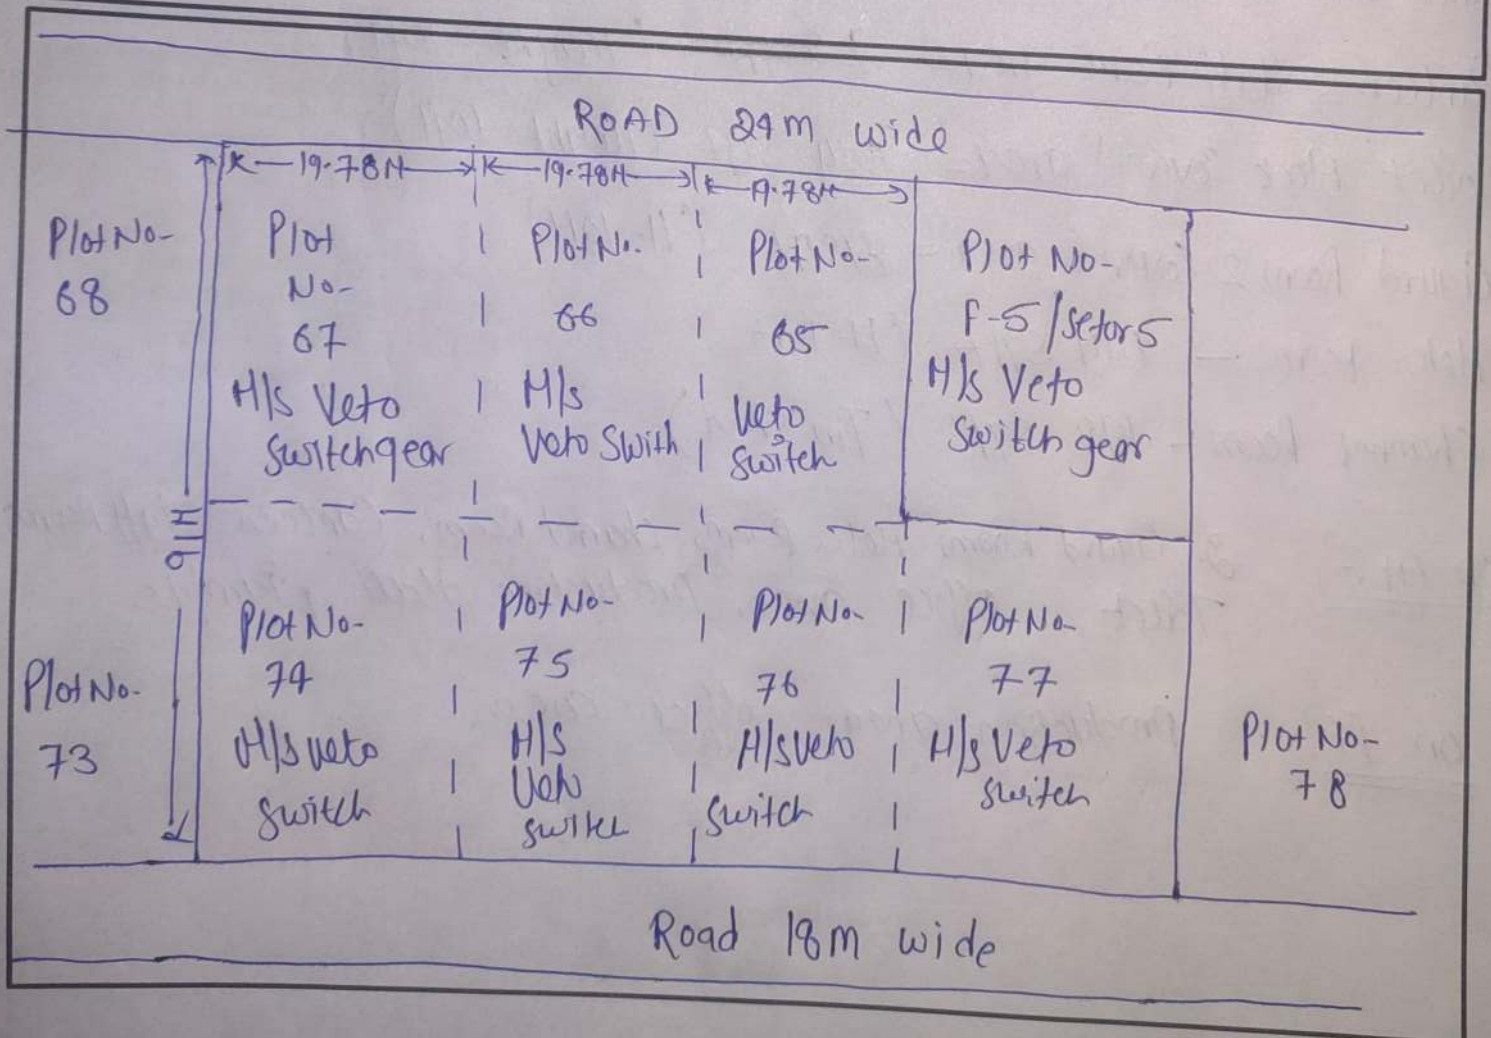 ROAD 24m wide
19.78M 19.78M 19.78M
Plot No- 68
Plot No- 67 M/s Veto Switchgear
Plot No. 66 M/s Veto Swith
Plot No- 65 Veto Switch
Plot No- F-5/Setor 5 M/s Veto Switch gear
91M
Plot No- 73
Plot No- 74 M/s veto Switch
Plot No- 75 M/s Veto switch
Plot No- 76 M/s veto Switch
Plot No- 77 M/s Veto Switch
Plot No- 78
Road 18m wide